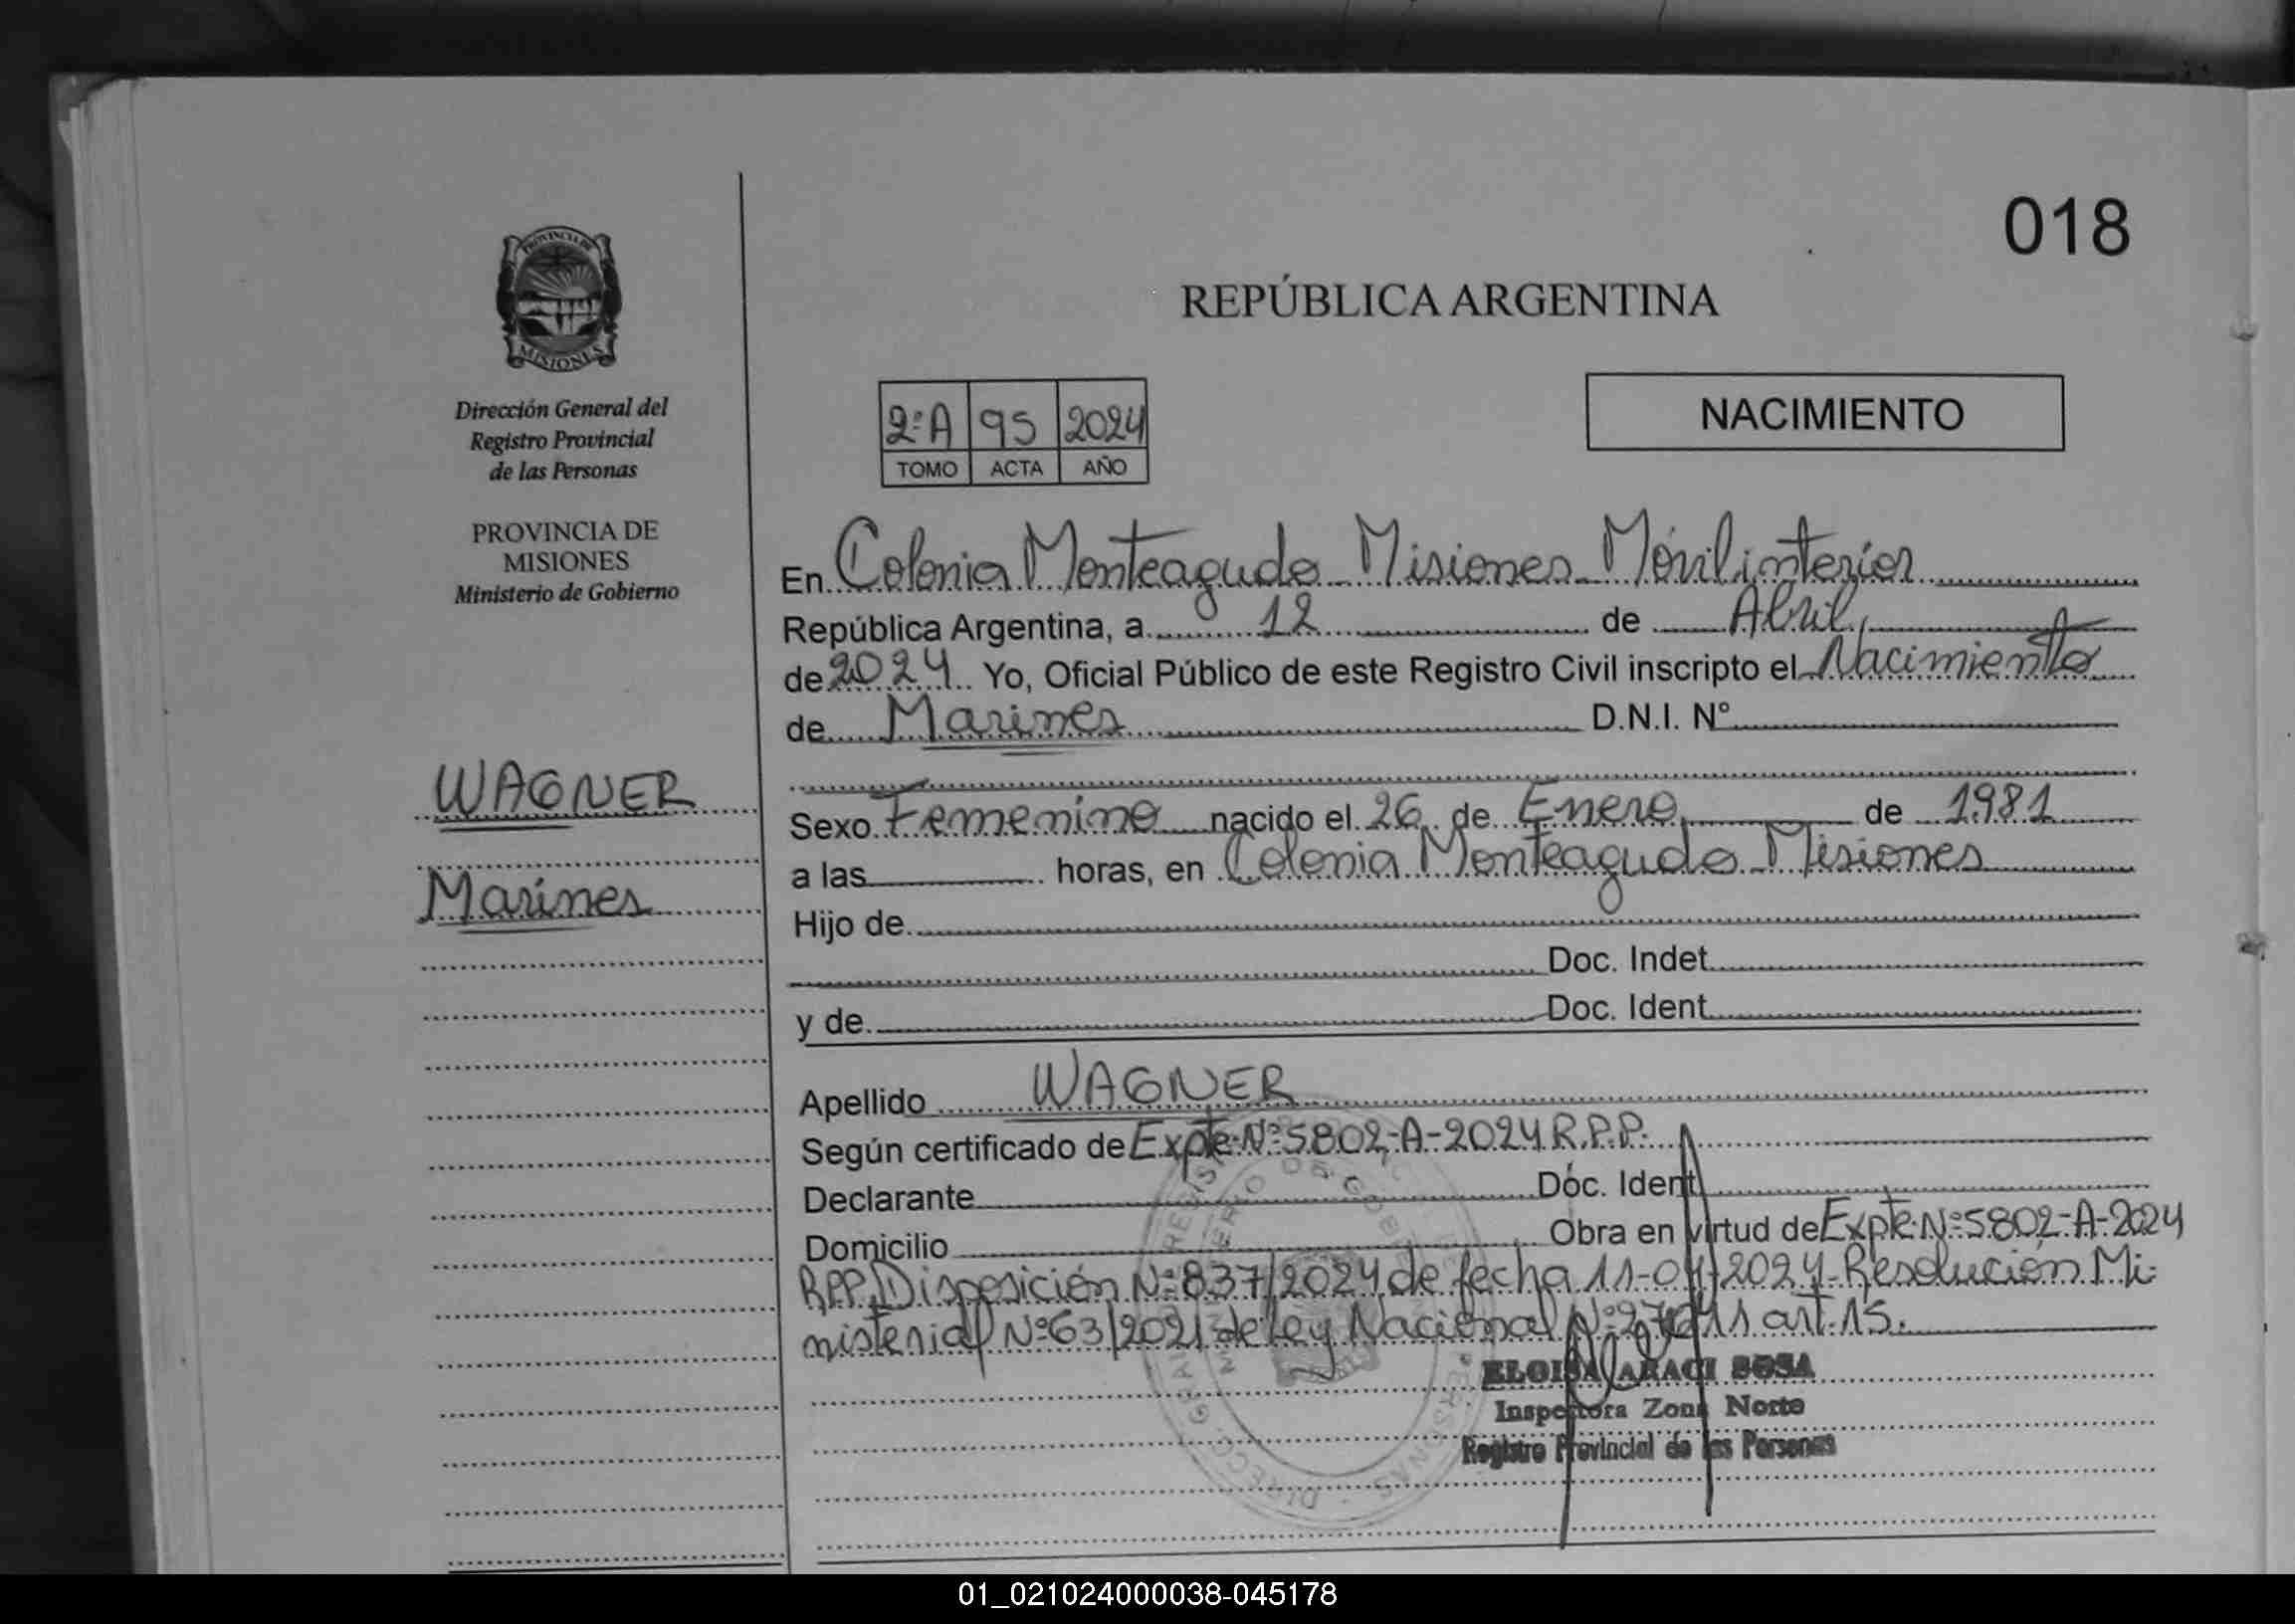 018
REPÚBLICA ARGENTINA
PROVINCIA DE
MISIONES
Dirección General del
Registro Provincial
de las Personas
PROVINCIA DE
MISIONES
Ministerio de Gobierno
2º A 95 2024
TOMO ACTA AÑO
NACIMIENTO
En Colonia Monteagudo Misiones Móvil interior
República Argentina, a 12 de Abril
de 2024 Yo, Oficial Público de este Registro Civil inscripto el Nacimiento
de Marines D.N.I. Nº
WAGNER
Marines
Sexo Femenino nacido el 26 de Enero de 1981
a las horas, en Colonia Monteagudo Misiones
Hijo de
Doc. Indet
y de Doc. Ident
Apellido WAGNER
Según certificado de Expte. Nº 5802-A-2024 R.P.P.
Declarante Doc. Ident
Domicilio Obra en virtud de Expte. Nº 5802-A-2024
RPP, Disposición Nº 837/2024 de fecha 11-04-2024. Resolución Mi-
nisterial Nº 63/2021 de Ley Nacional Nº art. 15.
ELOISA ARACI SOSA
Inspectora Zona Norte
Registro Provincial de las Personas
01_021024000038-045178